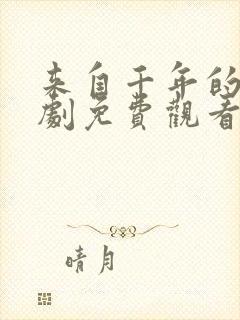 来自千年的
劇免費觀看
晴月